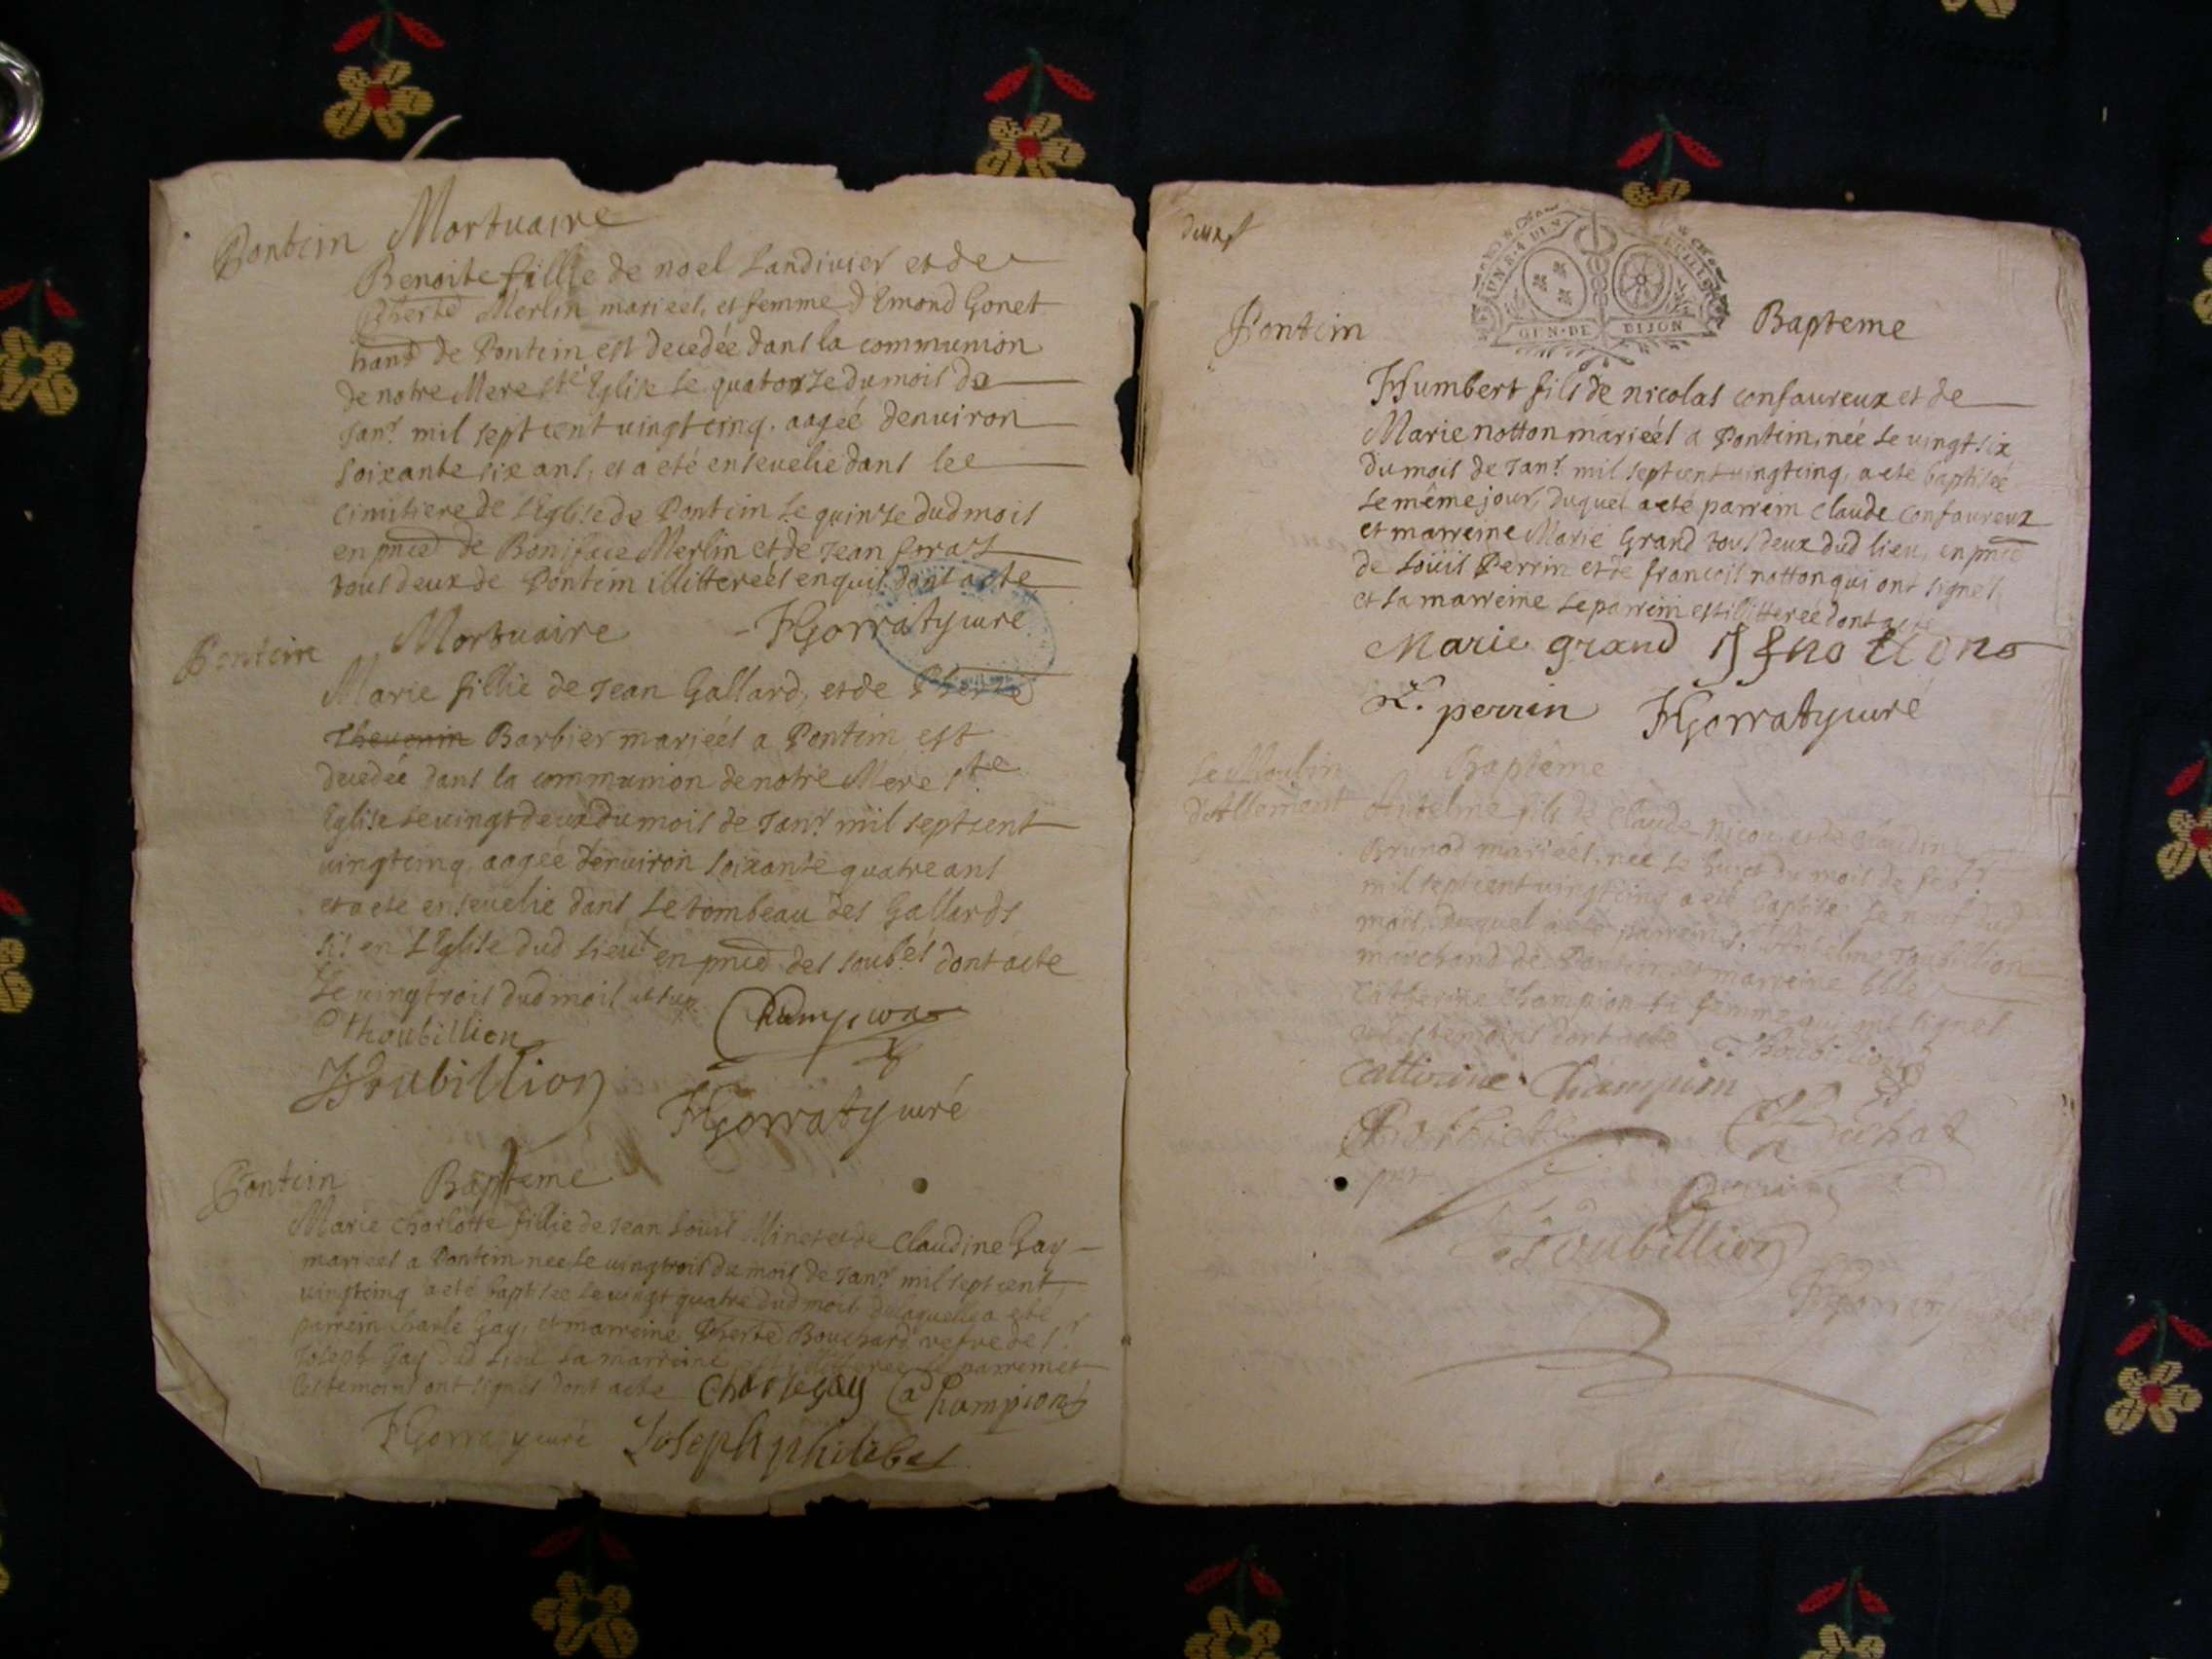 Pontein Mortuaire
Benoite fillie de noel Landivier et de
Pherte Merlin marieés, et femme d'Emond Gonet
hand de Pontein est decedée dans la communion
de notre Mere ste Eglise le quatorze du mois de
Janr mil sept cent vingt cinq. aageé denviron
soixante six ans, et a eté ensevelie dans lee
cimitiere de l'Eglise de Pontein le quinze dud mois
en pnce de Boniface Merlin et de Jean
tous deux de Pontein illittereés enquis dont acte
HGorraty curé
Pontein Mortuaire
Marie fillie de Jean Gallard, et de Pherte
Thevenin Barbier marieés a Pontein est
decedée dans la communion de notre Mere ste
Eglise le vingt deux du mois de Janr mil sept cent
vingt cinq, aageé denviron soixante quatre ans
et a eté ensevelie dans le tombeau des Gallards
sis en l'Eglise dud lieu en pnce des soubes dont acte
le vingt trois dud mois
Thoubillion Champion
Joubillion HGorraty curé
Pontein Bapteme
Marie Charlotte fillie de Jean Louis Minet et de Claudine Gay
marieés a Pontein neé le vingt trois du mois de Janr mil sept cent
vingt cinq a eté baptiseé le vingt quatre dud mois de laquelle a eté
parrein Charle Gay, et marreine Pherte Bouchard vefve de
Joseph Gay dud lieu la marreine est illittereé le parrein et
les temoins ont signés dont acte Charle gay Champion
HGorraty curé Joseph philibes
deux
GEN · DE DIJON
Pontein Bapteme
Humbert fils de nicolas confaureux et de
Marie notton marieés a Pontein, née le vingt six
du mois de Janr mil sept cent vingt cinq, a eté baptiseé
le même jour, duquel a eté parrein claude confaureux
et marreine Marie Grand tous deux dud lieu, en pnce
de Loüis Perrin et de françois notton qui ont signes
et la marreine le parrein est illittereé dont acte
Marie grand nottono
perrin HGorraty curé
Le Moulin Bapteme
d'Allement Antelme fils de Claude nicou, et de Claudine
Brunod marieés, née le huict du mois de
mil sept cent vingt cinq a eté baptisé le neuf dud
mois, duquel a eté parrein s. Antelme Joubillion
marchand de Pontein, et marreine
Catherine Champion sa femme qui ont signes
temoins dont acte Thoubillion
Catterine Champion
Duchat
Joubillion
HGorraty curé